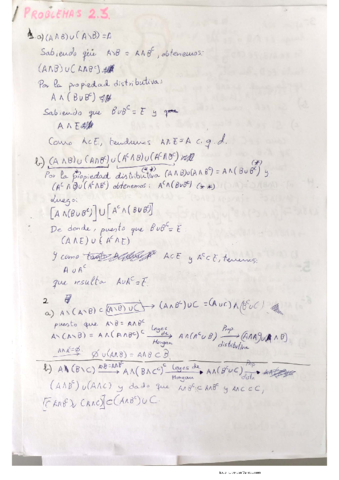 PROBLEMAS 2.3.
1. a) (A∩B)∪(A\B)=A
Sabiendo que A\B = A∩Bᶜ, obtenemos:
(A∩B)∪(A∩Bᶜ)
Por la propiedad distributiva:
A∩(B∪Bᶜ)
Sabiendo que B∪Bᶜ=E y
A∩E
Como A⊂E, tendremos A∩E=A c.q.d.
b) (A∩B)∪(A∩Bᶜ)∪(Aᶜ∩B)∪(Aᶜ∩Bᶜ)
Por la propiedad distributiva (A∩B)∪(A∩Bᶜ)=A∩(B∪Bᶜ) y
(Aᶜ∩B)∪(Aᶜ∩Bᶜ) obtenemos: Aᶜ∩(B∪Bᶜ) (**)
Luego:
[A∩(B∪Bᶜ)]∪[Aᶜ∩(B∪Bᶜ)]
De donde, puesto que B∪Bᶜ=E
(A∩E)∪(Aᶜ∩E)
Y como A⊂E y Aᶜ⊂E, tenemos
A∪Aᶜ
que resulta A∪Aᶜ=E
2.
a) A\(A\B)=
puesto que A\B = A∩Bᶜ
A\(A\B) = A∩(A∩Bᶜ)ᶜ Leyes de Morgan A∩(Aᶜ∪B) Prop. distributiva
∅∪(A∩B)=A∩B⊂B
b) A\(B\C) A∩(B∩Cᶜ)ᶜ Leyes de Morgan A∩(Bᶜ∪C)
(A∩Bᶜ)∪(A∩C) y dado que A∩Bᶜ⊂A∩Bᶜ y A∩C⊂C,
[(A∩Bᶜ)∪(A∩C)]⊂(A∩Bᶜ)∪C